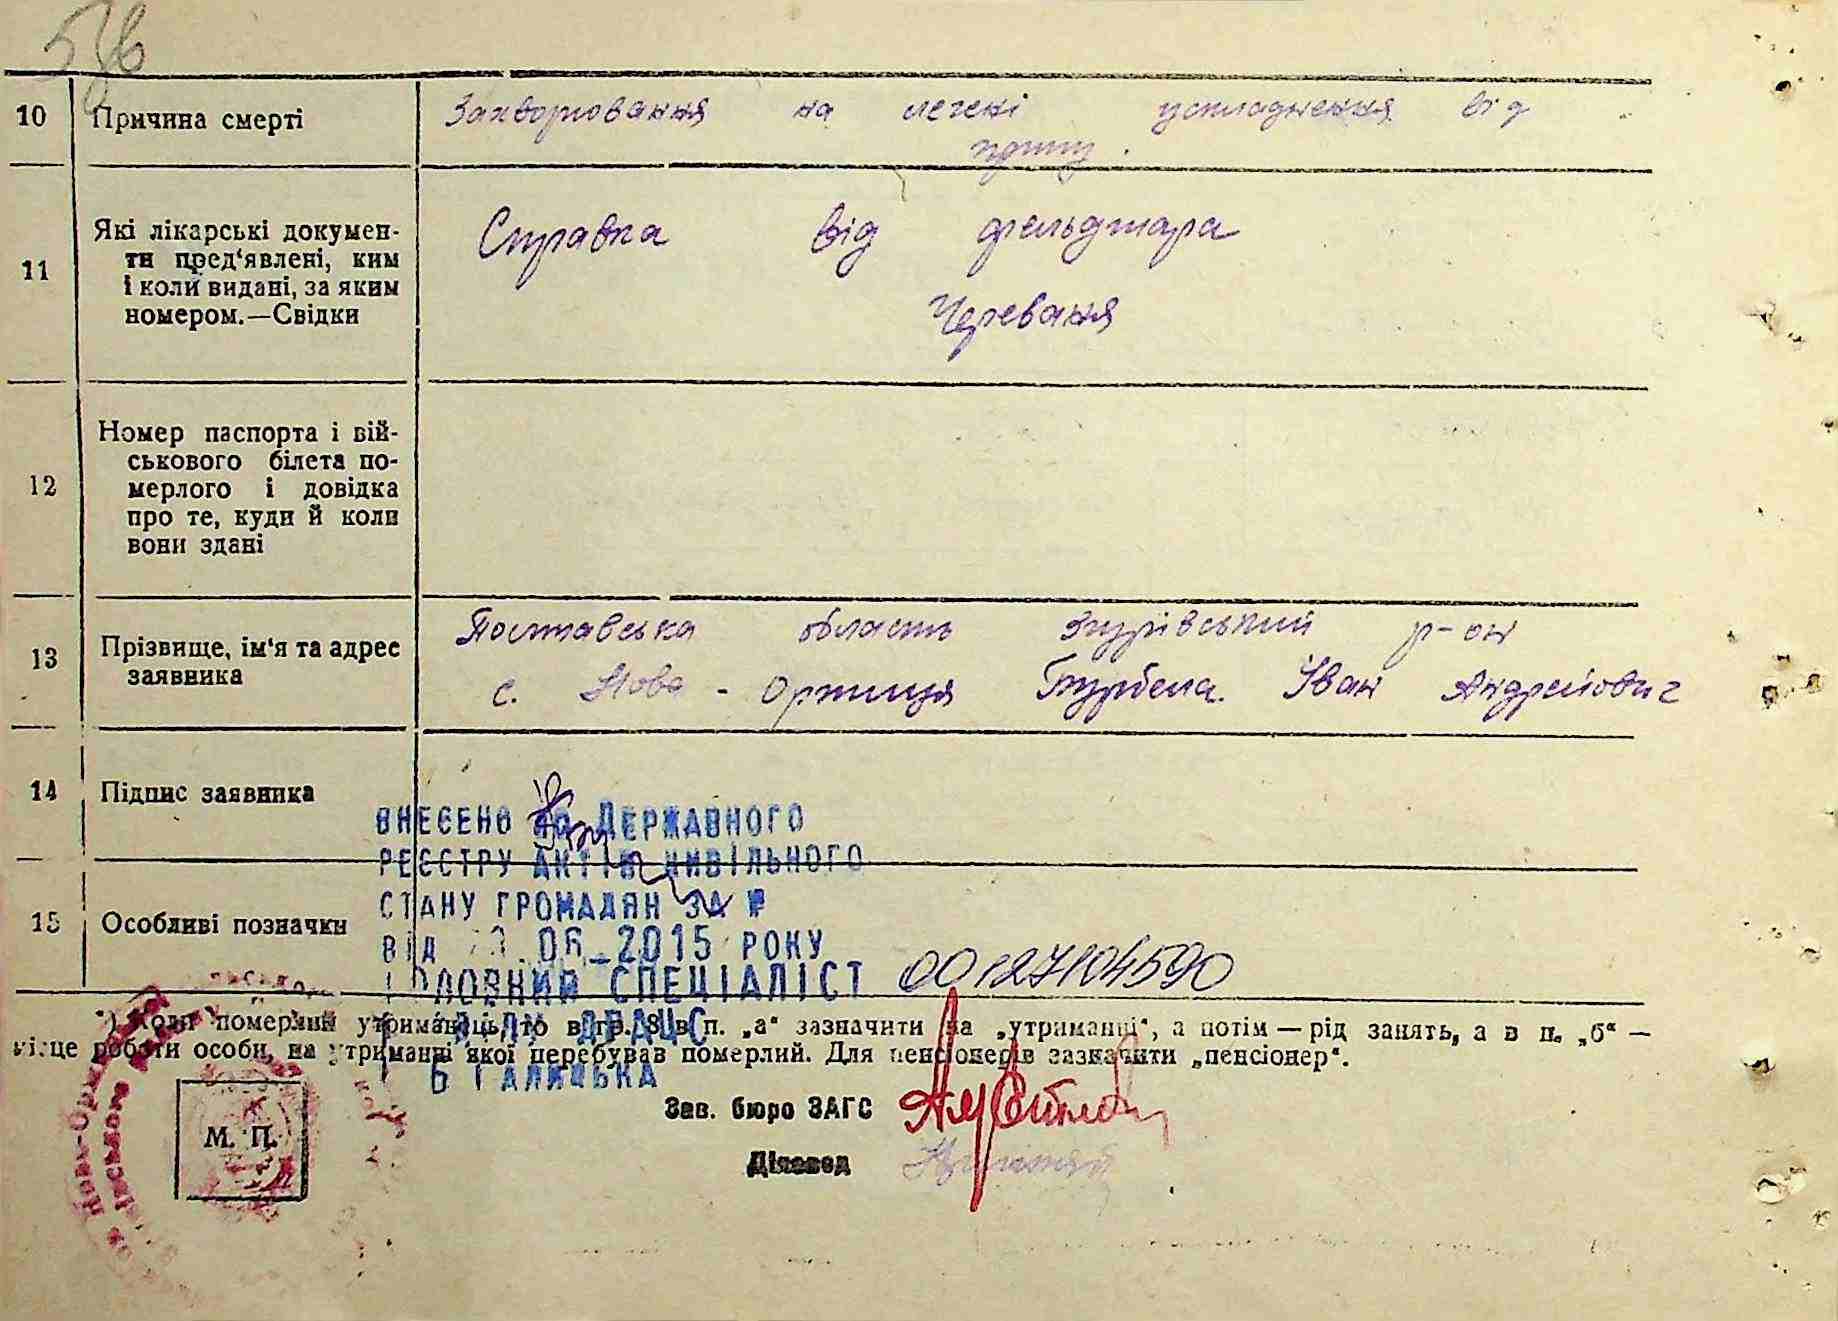 10 Причина смерті Захворювання на легені ускладнення від
грипу.
11 Які лікарські докумен-
ти пред'явлені, ким
і коли видані, за яким
номером.—Свідки
Справка від фельдшара
Череваня
12 Номер паспорта і вій-
ськового білета по-
мерлого і довідка
про те, куди й коли
вони здані
13 Прізвище, ім'я та адрес
заявника
Полтавська область Згурівський р-он
с. Ново-Оржиця Бурбела Іван Андрейович
14 Підпис заявника
15 Особливі позначки
ВНЕСЕНО ДО ДЕРЖАВНОГО
РЕЄСТРУ АКТІВ ЦИВІЛЬНОГО
СТАНУ ГРОМАДЯН ЗА №
ВІД 06 2015 РОКУ
ГОЛОВНИЙ СПЕЦІАЛІСТ 00127104590
ВІДДІЛУ ДРАЦС
*) Коли померлий утриманець, то в гр. 8 в п. „а“ зазначити на „утриманці“, а потім — рід занять, а в п. „б“ —
місце роботи особи, на утриманні якої перебував померлий. Для пенсіонерів зазначити „пенсіонер“.
М. П.
Зав. бюро ЗАГС
Діловод